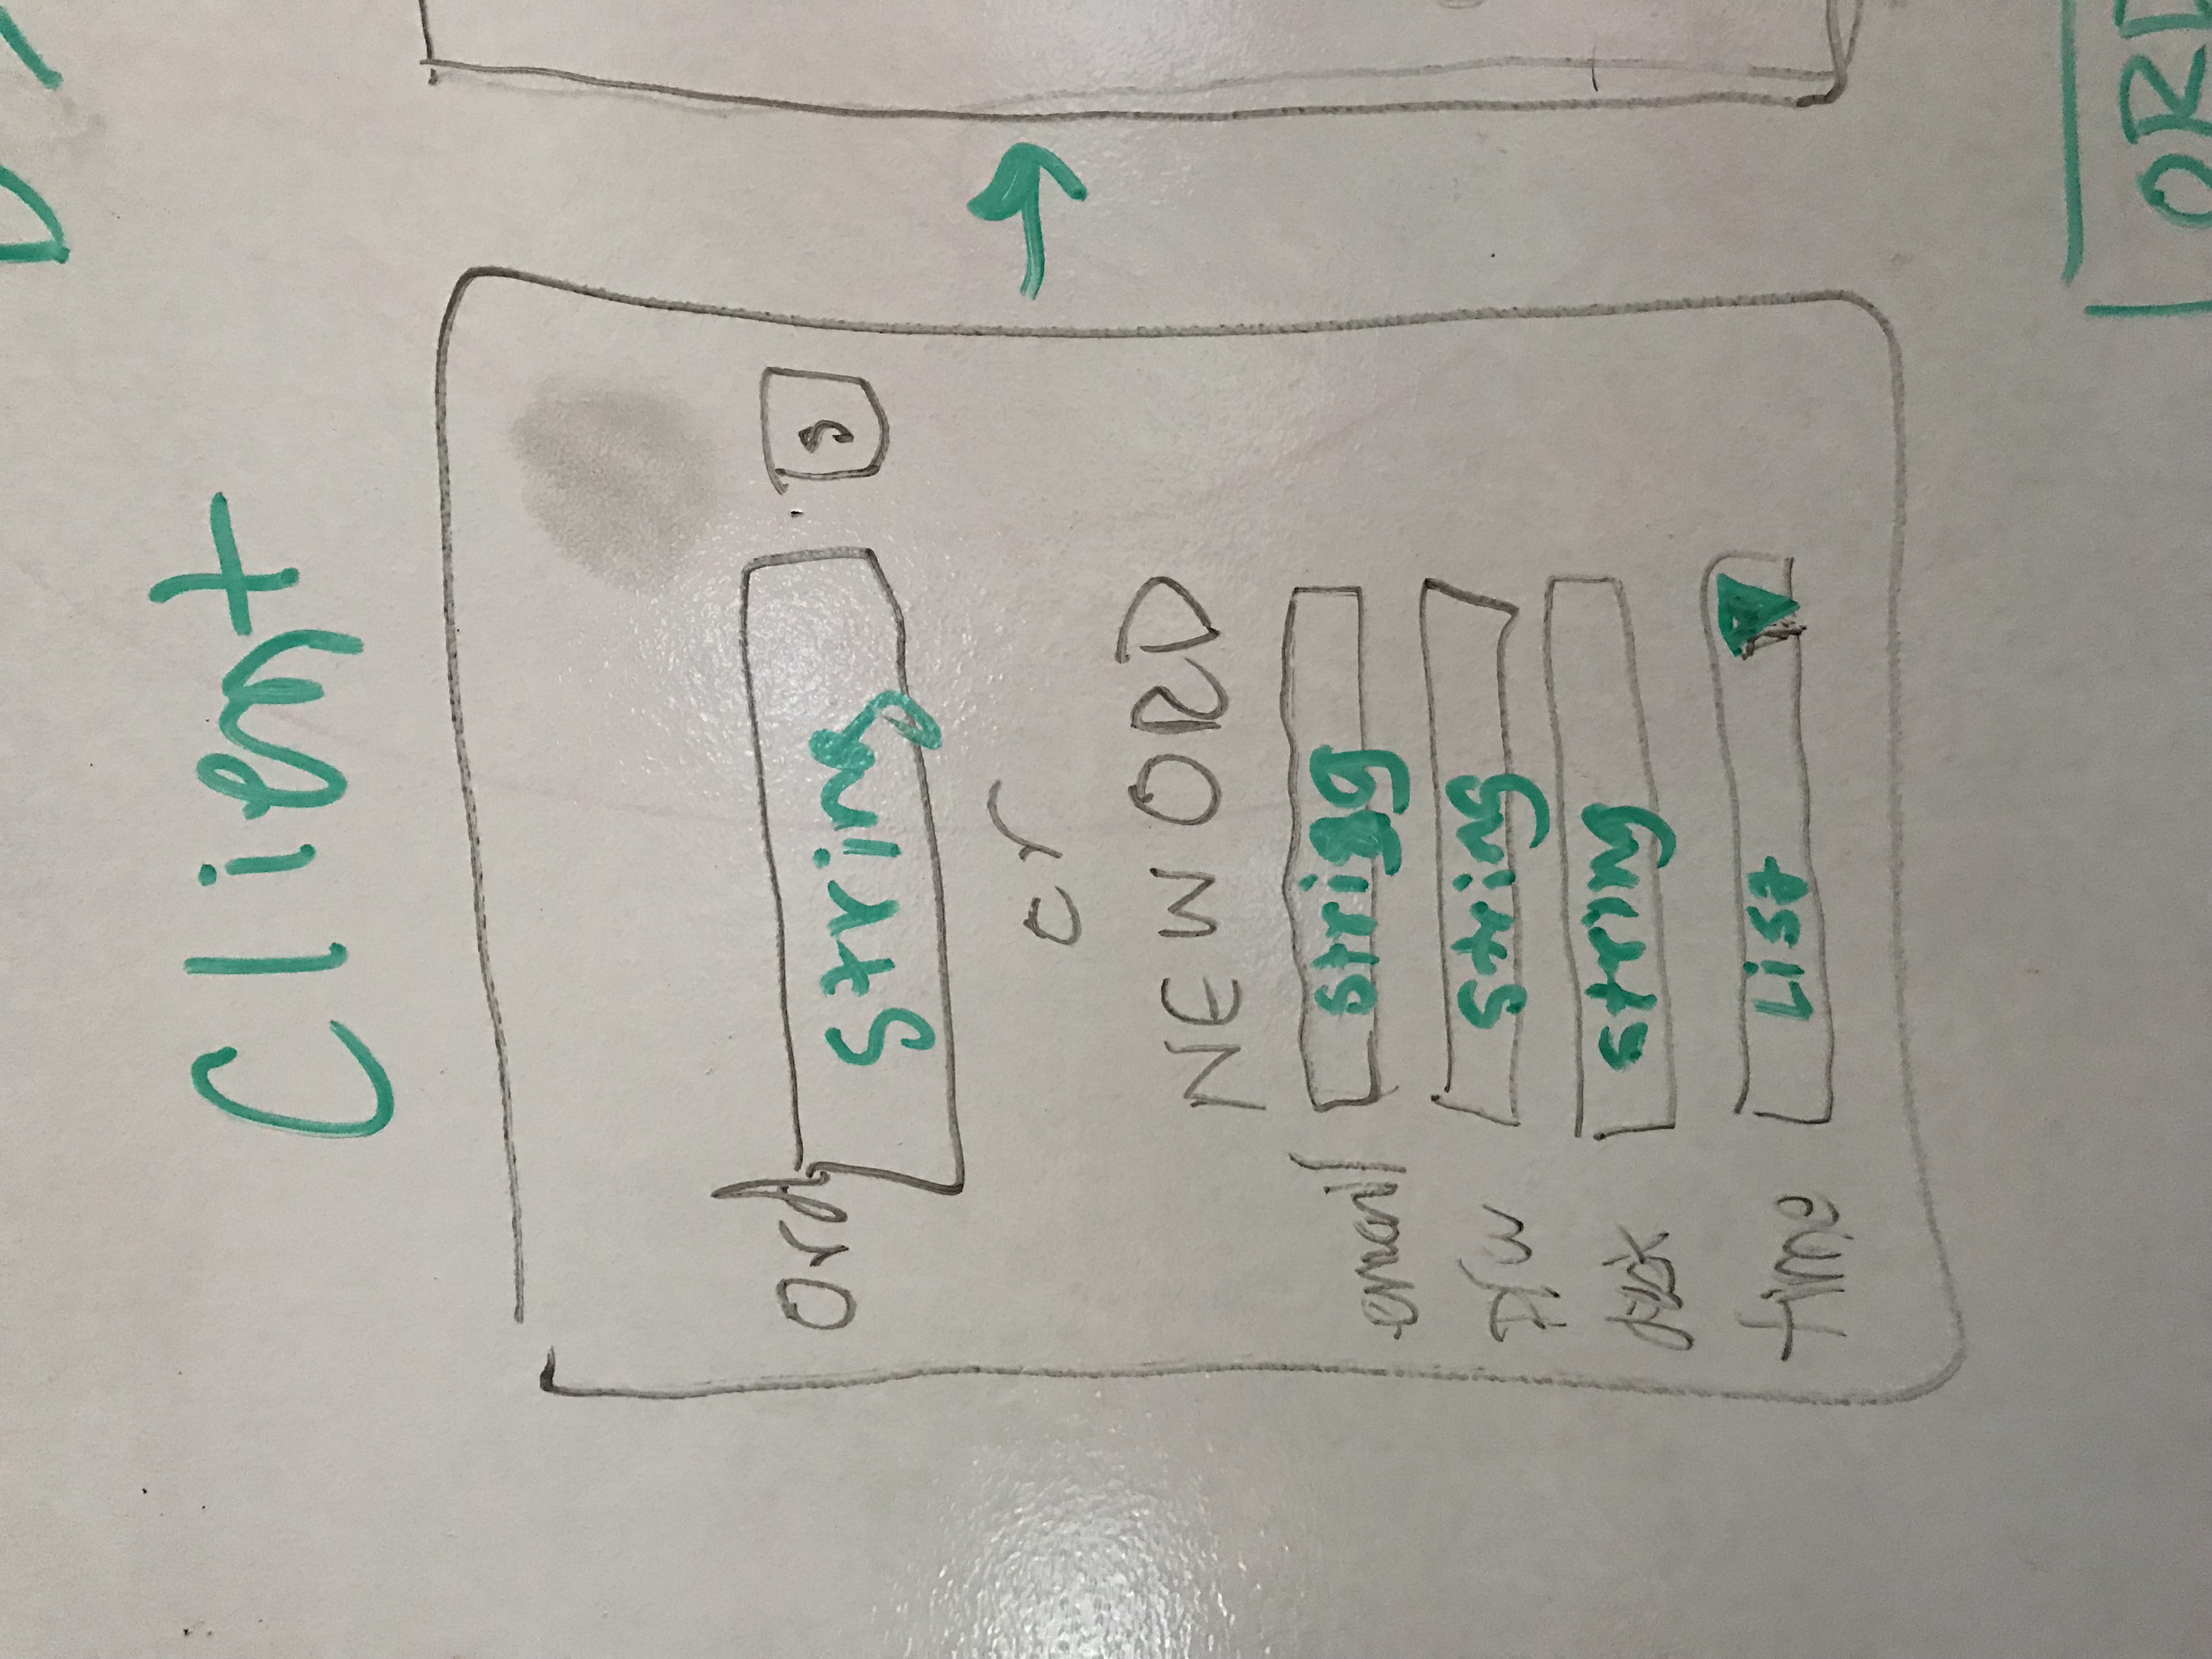 Client
Ord String S
or
NEW ORD
email string
P/W String
string
time List
ORD